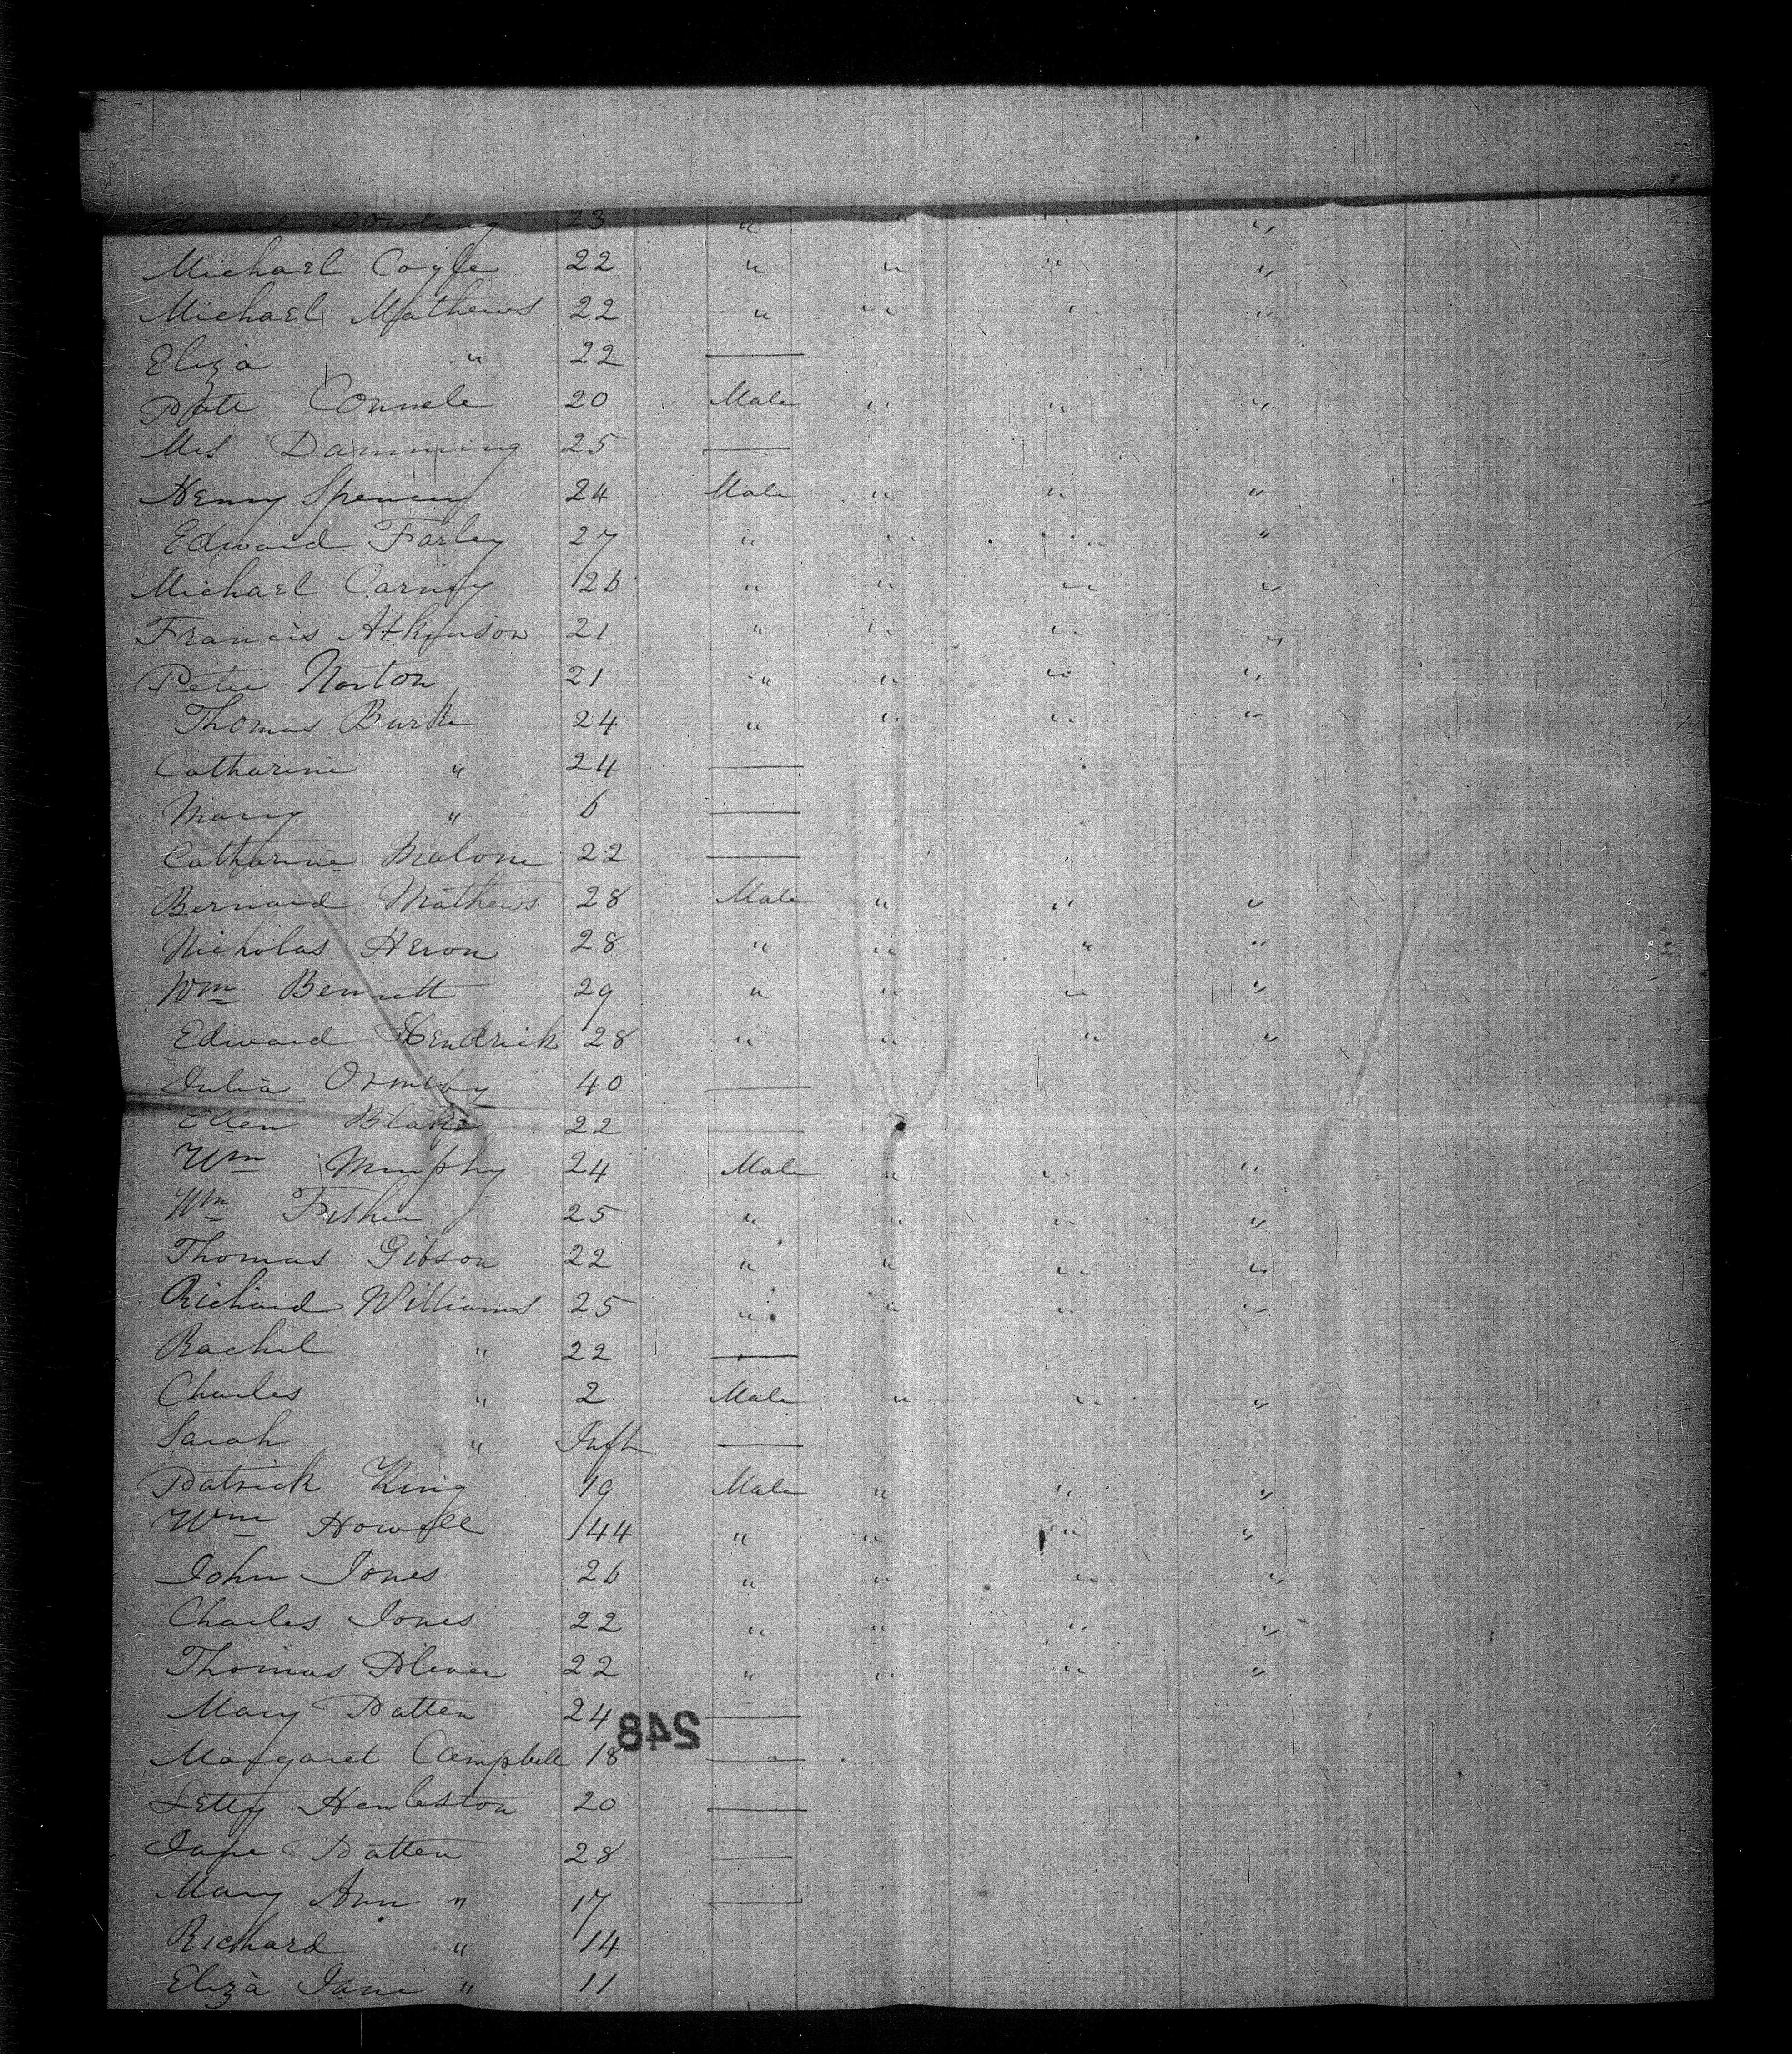 Edward Dowling 23 " " " "
Michael Coyle 22 " " " "
Michael Mathews 22 " " " "
Eliza " 22 —
Patt Connele 20 Male " " "
Mrs Damming 25 —
Henry Spencer 24 Male " " "
Edward Farley 27 " " " "
Michael Carney 26 " " " "
Francis Atkinson 21 " " " "
Peter Norton 21 " " " "
Thomas Burke 24 " " " "
Catharine " 24 —
Mary " 6 —
Catharine Malone 22 —
Bernard Mathews 28 Male " " "
Nicholas Heron 28 " " " "
Wm Bennett 29 " " " "
Edward Hendrick 28 " " " "
Julia Ormsby 40 —
Ellen Blake 22 —
Wm Murphy 24 Male " " "
Wm Fisher 25 " " " "
Thomas Gibson 22 " " " "
Richard Williams 25 " " " "
Rachel " 22 —
Charles " 2 Male " " "
Sarah " Inft —
Patrick King 19 Male " " "
Wm Howell 44 " " " "
John Jones 26 " " " "
Charles Jones 22 " " " "
Thomas 22 " " " "
Mary Patten 24 —
248
Margaret Campbell 18 —
Letty 20 —
Jane Patten 28 —
Mary Ann " 17 —
Richard " 14
Eliza Jane " 11